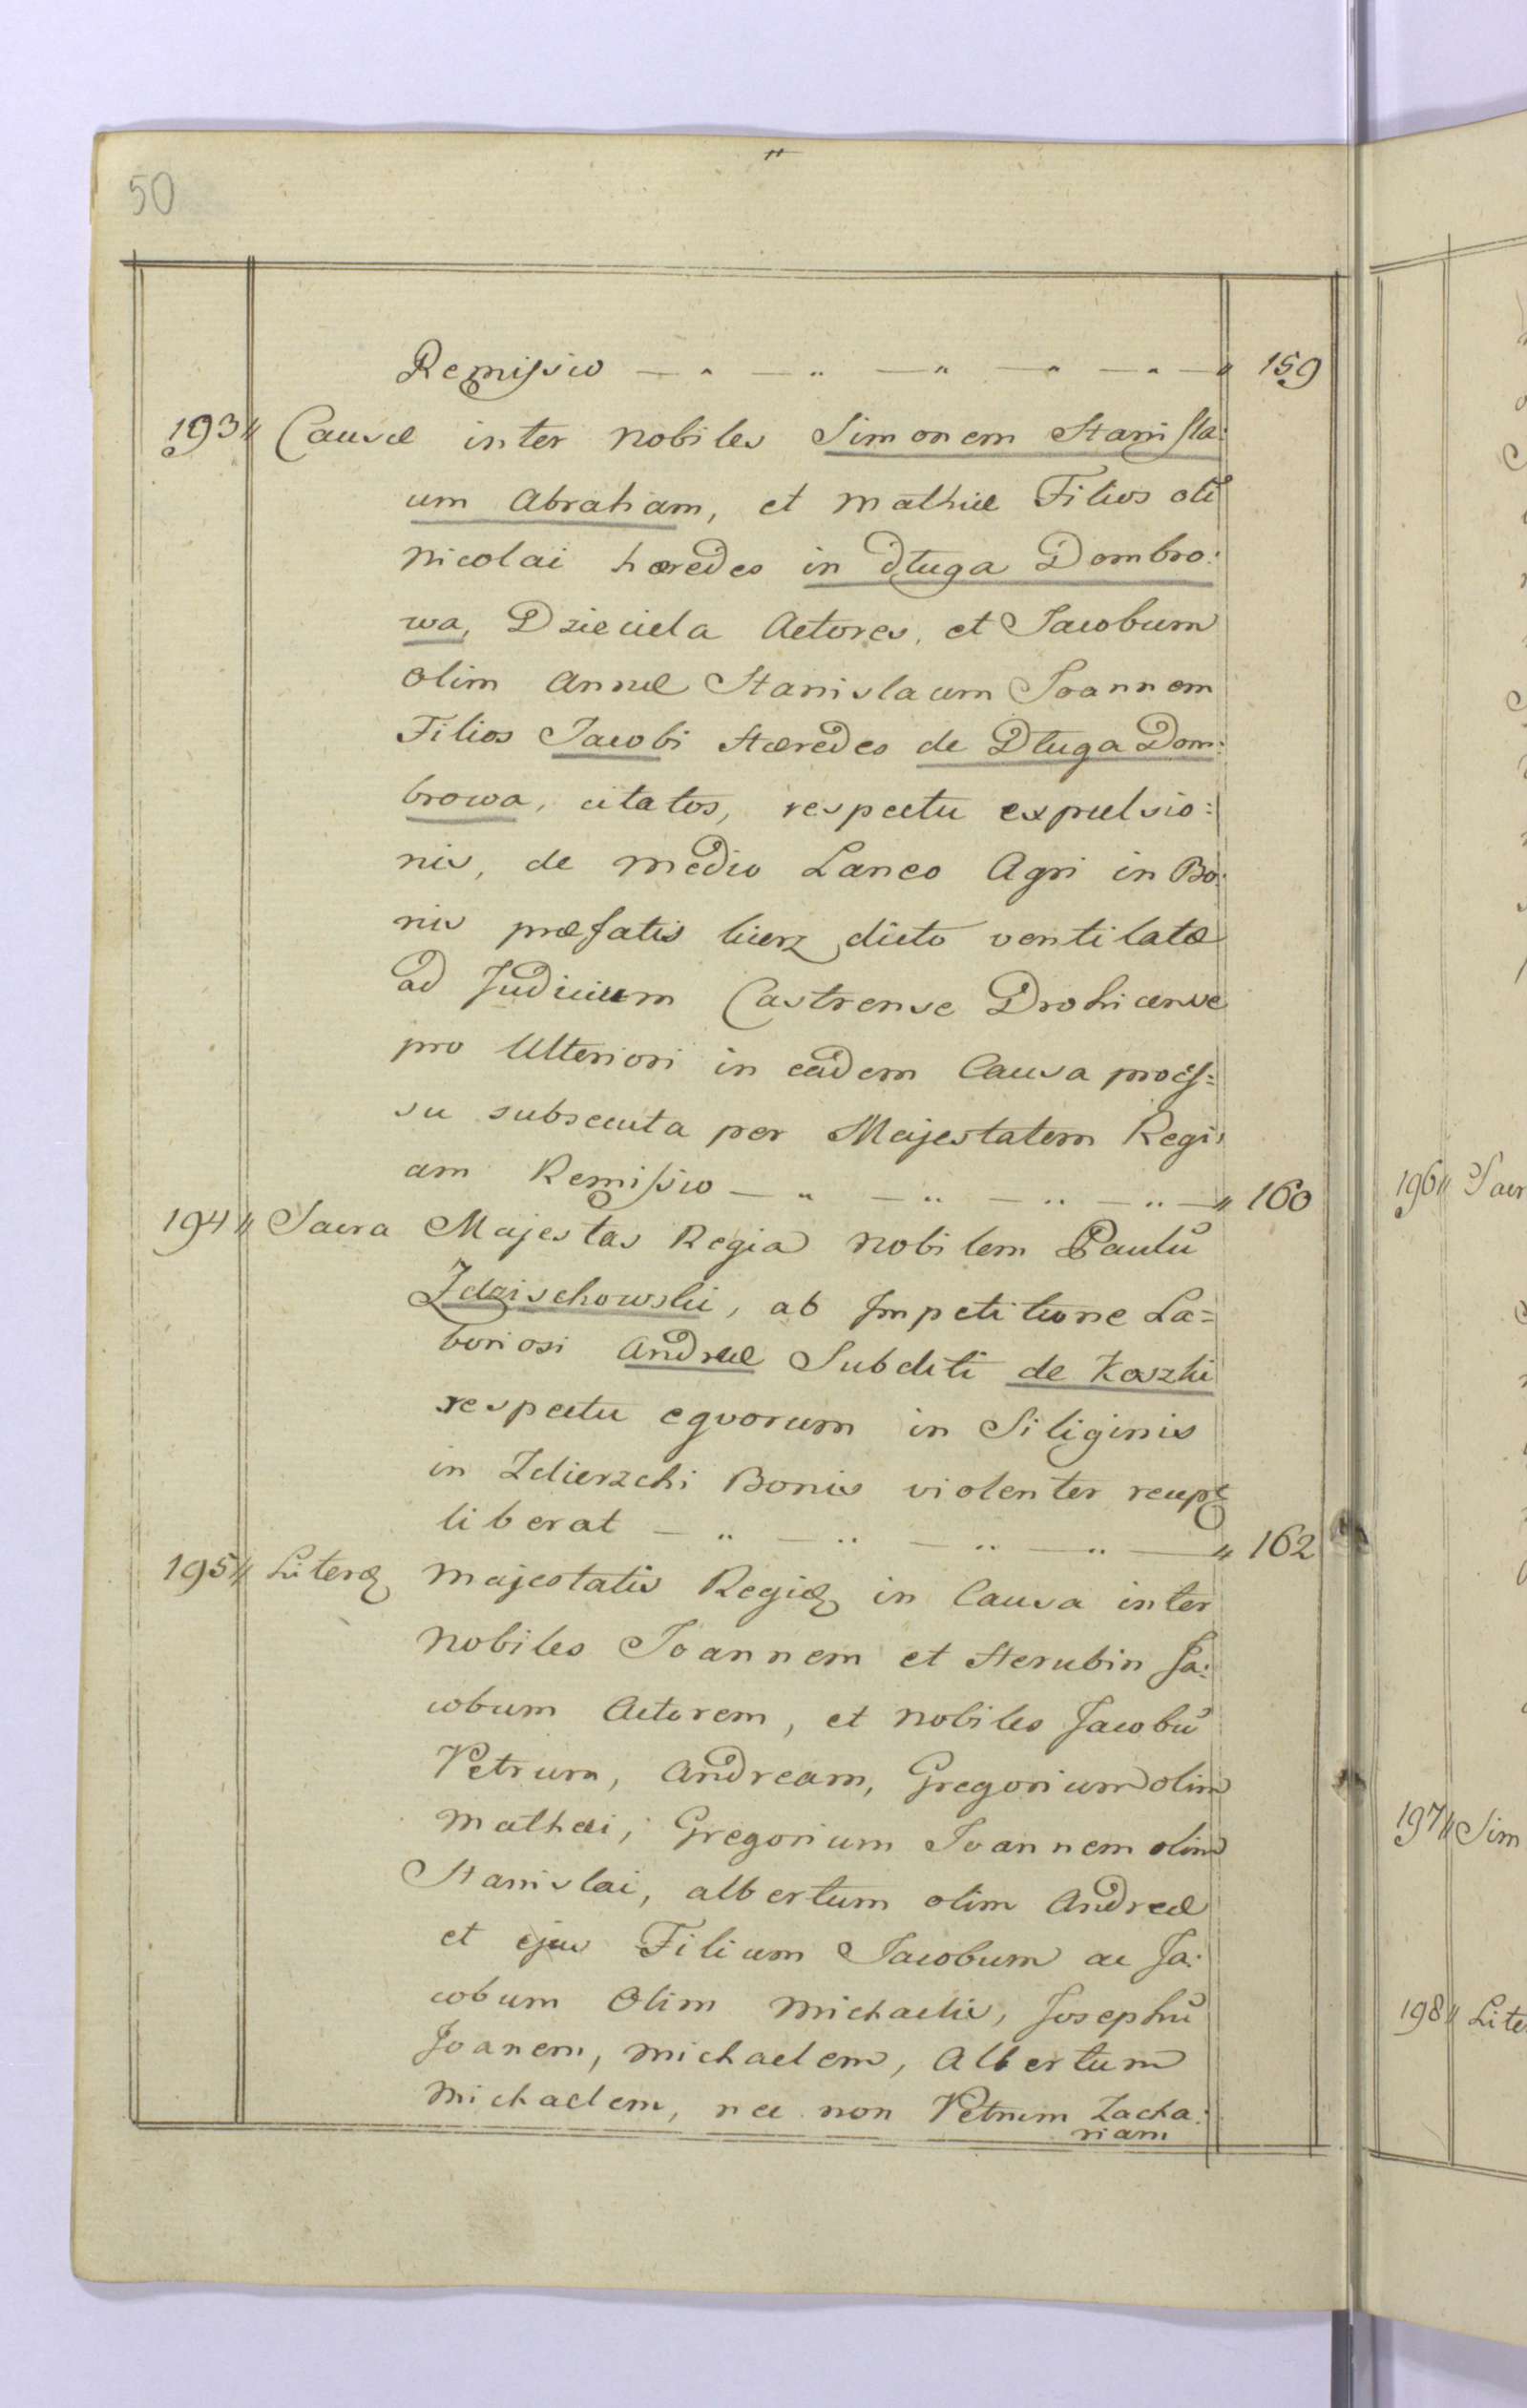 50
Remissio — " — " — " — " — " — " 159
193 " Causæ inter Nobiles Simonem Stanisla:
um Abraham, et Mathiæ Filios oli
Nicolai hæredes in Długa Dombro:
wa, Dzieciela Actores, et Jacobum
olim Annæ Stanislaum Joannem
Filios Jacobi Hæredes de Dluga Dom:
browa, citatos, respectu expulsio:
nis, de medio Laneo Agri in Bo:
nis præfatis dicto ventilatæ
ad Judicium Castrense Drohicense
pro Ulteriori in eadem Causa proces=
su subsecuta per Majestatem Regi:
am Remissio — " — " — " — " — " 160
194 " Sacra Majestas Regia Nobilem Paulū
Zdzischowski, ab Impetitione La=
boriosi Andreæ Subditi de Koszki
respectu eqvorum in Siliginis
in Zdierzchi Bonis violenter recept
liberat — " — " — " — " — " 162
195 " Literæ Majestatis Regiæ in Causa inter
Nobiles Joannem et Herubin Ja:
cobum Actorem, et Nobiles Jacobū
Petrum, Andream, Gregorium olim
Mathæi, Gregorium Joannem olim
Stanislai, albertum olim Andreæ
et ejus Filium Jacobum ac Ja:
cobum Olim Michaelis, Josephū
Joanem, Michaelem, Albertum
Michaelem, nec non Petrum Zacha:
riam
196 " Sacr
197 " Sim
198 " Lite